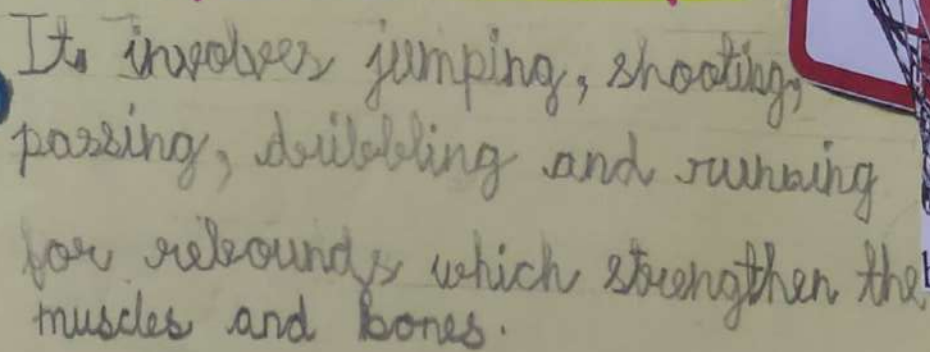 It involves jumping, shooting,
passing, dribbling and running
for rebounds which strengthen the
muscles and bones.